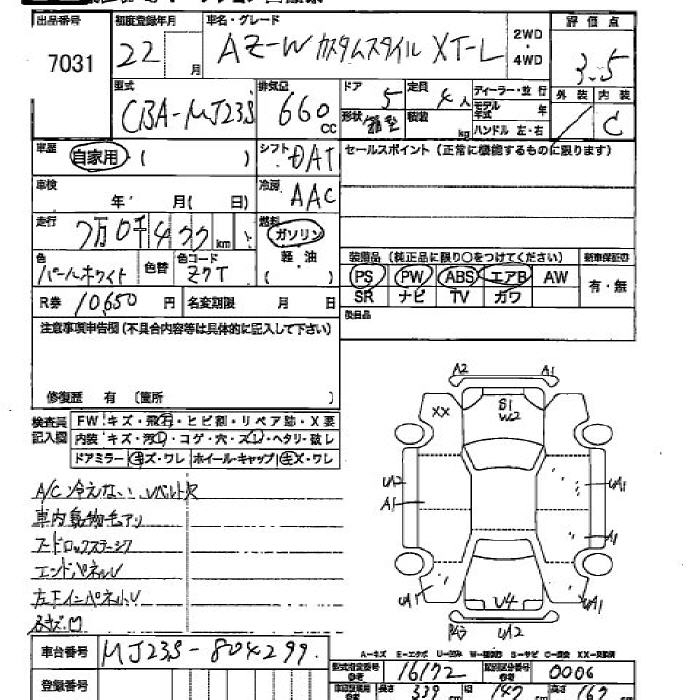 出品番号 初度登録年月 車名・グレード 評価点
7031 22 月 AZ-W カスタムスタイル XT-L 2WD・4WD 3.5
型式 排気量 ドア 定員 ディーラー・並行 外装 内装
CBA-MJ23S 660 CC 5 4人 モデル年式 年 C
形状 箱型 積載 kg ハンドル 左・右
車歴 自家用 ( ) シフト DAT セールスポイント (正常に機能するものに限ります)
車検 年 月( 日) 冷房 AAC
走行 7万0千4 km 燃料 ガソリン
軽油
( )
色 パールホワイト 色替 色コード Z7T
装備品 (純正品に限り○をつけてください) 新車保証書
PS PW ABS エアB AW 有・無
SR ナビ TV カワ
R券 10,650 円 名変期限 月 日 後日品
注意事項申告欄 (不具合内容等は具体的に記入して下さい)
修復歴 有 (箇所 )
検査員記入欄
FW キズ・飛石・ヒビ割・リペア跡・X要
内装 キズ・汚レ・コゲ・穴・スレ・ヘタリ・破レ
ドアミラー キズ・ワレ ホイール・キャップ キズ・ワレ
A/C冷えない、Vベルト欠
車内動物毛アリ
エンドパネルU
左下インパネ小U
A2 A1
XX S1 W2
UA2 UA1
A1 A1
UA1 U4 UA1
UA2
A=キズ E=エクボ U=凹み W=補修跡 S=サビ C=腐食 XX=交換済
車台番号 MJ23S-804299
型式指定番号 16172 類別区分番号 0006
登録番号 長さ 339 幅 147 高さ